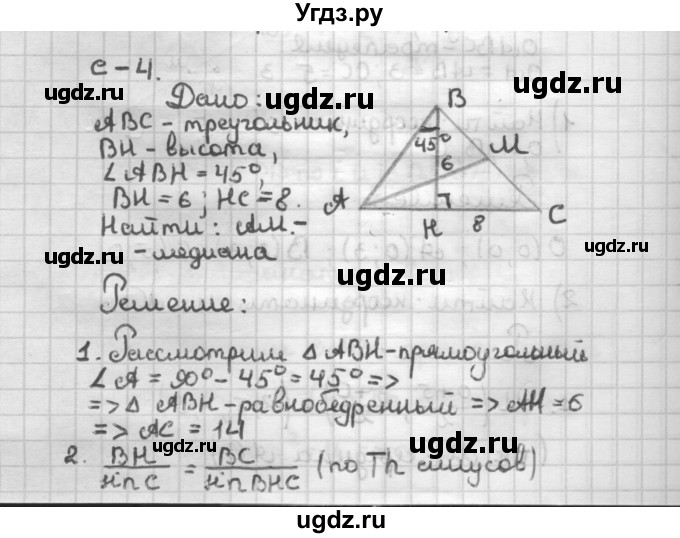 Угдз.ру
с-4.
ugdz.ru ugdz.ru
Дано:
ABC - треугольник,
BH - высота,
∠ABH = 45°,
BH = 6; HC = 8.
Найти: AM -
- медиана
B
45°
M
6
A
H
8
C
ugdz.ru
ugdz.ru ugdz.ru ugdz.ru
Решение:
1. Рассмотрим △ABH - прямоугольный
∠A = 90° - 45° = 45° =>
=> △ ABH - равнобедренный => AH = 6
=> AC = 14
ugdz.ru
2. BH/sin C = BC/sin BHC (по Th синусов)
ugdz.ru
ugdz.ru